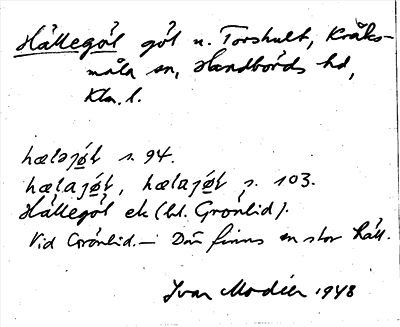 Hällegöl göl n. Torshult, Kråks-
måla sn, Handbörds hd,
Klm. l.
hæləjø̀l s. 94.
hælajø̀l, hælajø̀l s. 103.
Hällegöl ek (bl. Grönlid).
Vid Grönlid. – Där finns en stor häll.
Ivar Modéer 1943